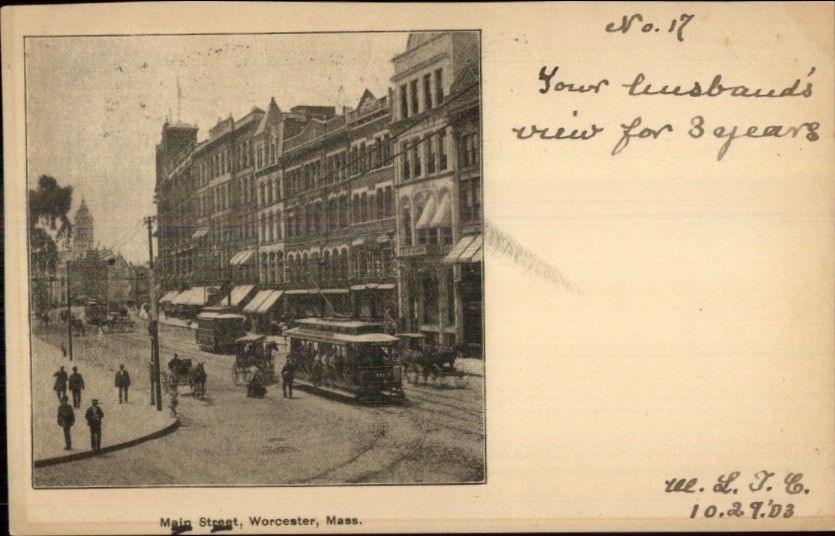 No. 17
Your husband's
view for 3 years
Main Street, Worcester, Mass.
M. L. T. C.
10.29.'03